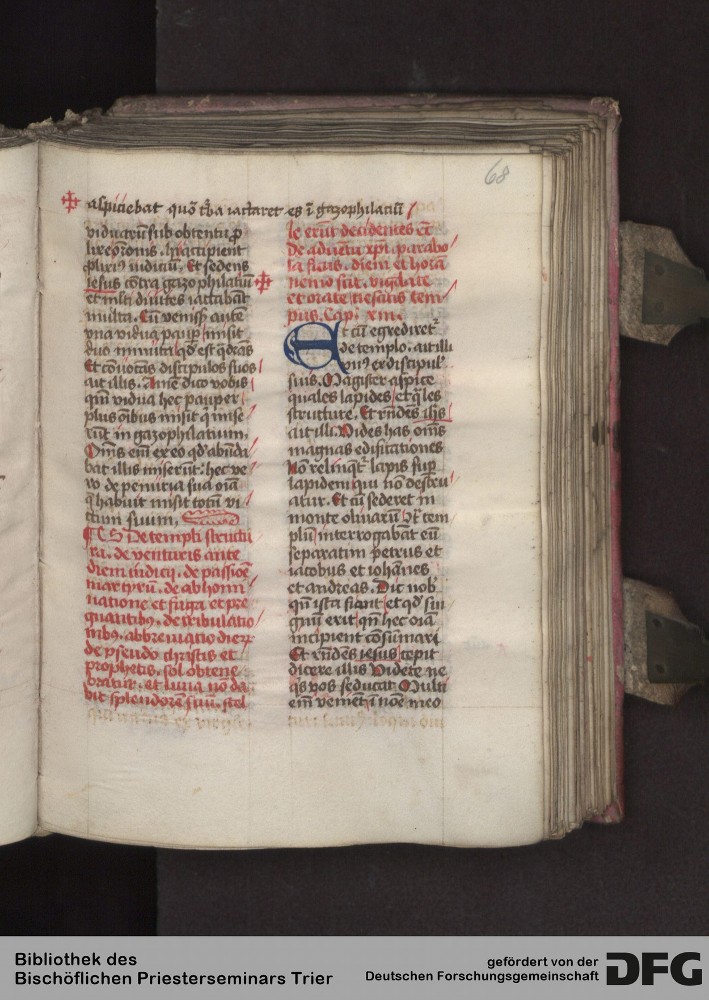 68
aspiciebat quō t͛ba iactaret es ī gazophilaciū
viduarū sub obtentu ꝓ
lixe orōnis. hii accipient
ꝓlixiꝰ iudiciū. Et sedens
iesus cōtra gazophilatiū
et mlti diuites iactabāt
multa. Cū veniss; autē
vna vidua pauꝑ misit
duo minuta qd̕ est q̕drās
Et cōuocās discipulos suos
ait illis. Amē dico vobis
qm̄ vidua hec pauper
plus oībus misit q̕ mise
rūt in gazophilatium.
Om̄s em̄ ex eo qd̕ abūda
bat illis miserūt: hec ve
ro de penuria sua oīa
q̄ habuit misit totū vi
ctum suum.
De templi structu
ra. de venturis ante
diem iudicii. de passiōe
martyrū. de abhomi
natione et fuga et pre
gnantibꝰ. de tribulatio
nibꝰ. abbreuiatio dieꝝ
de pseudo christis et
prophetis. sol obtene
brabit᷑. et luna nō da
bit splendorē suū. stel
le erūt decidentes et
de aduētu xp̄i. parabo
la ficus. diem et horā
nemo scit. vigilate
et orate nescitis tem
pus. Cap. xiii.
Et cū egrederet᷑
de templo. ait illi
vnꝰ ex discipul̕
suis. Magister aspice
quales lapides et q̄les
structure. Et rn̄dēs ih̄s
ait illi. Vides has om̄s
magnas edificationes
Nō relinq̄t᷑ lapis suꝑ
lapidem qui nō destru
atur. Et cū sederet in
monte oliuarū ↄ͛ tem
plū interrogabant eū
separatim petrus et
iacobus et iohānes
et andreas. Dic nob̕
qn̄ ista fiant et qd̕ sig
gnū erit qn̄ hec oīa
incipient cōsūmari
Et rn̄dens iesus cepit
dicere illis Videte ne
q̕s vos seducat Multi
em̄ veniēt ī noīe meo
Bibliothek des
Bischöflichen Priesterseminars Trier
gefördert von der
Deutschen Forschungsgemeinschaft
DFG